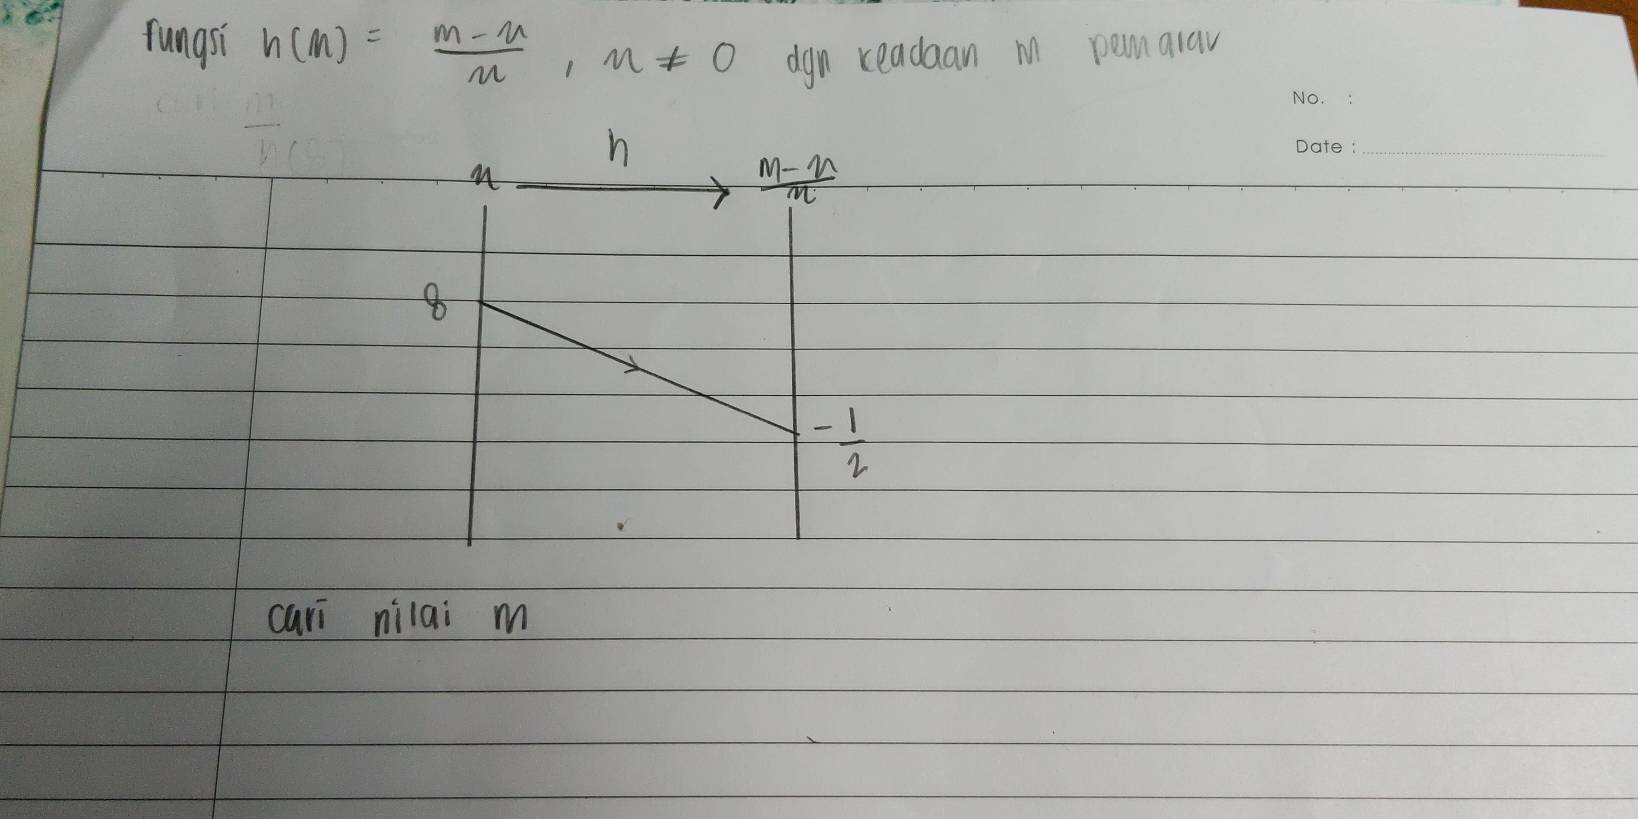 fungsi h(n) = m-n/n , n ≠ 0 dgn keadaan m pemalar
cari m/h(8)
No. :
Date :
n h m-n/n
8
- 1/2
cari nilai m